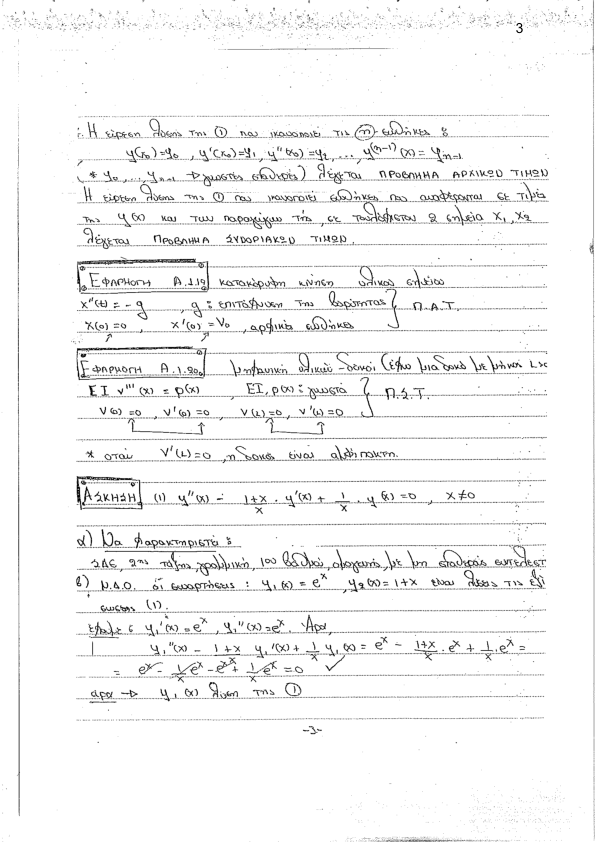 3
∴ Η εύρεση λύσης της ① που ικανοποιεί τις ⓝ συνθήκες :
y(x₀)=y₀ , y'(x₀)=y₁ , y''(x₀)=y₂ , ... , y⁽ⁿ⁻¹⁾(x)=yₙ₋₁
( * y₀, ..., yₙ₋₁ → γνωστές σταθερές ) λέγεται ΠΡΟΒΛΗΜΑ ΑΡΧΙΚΩΝ ΤΙΜΩΝ
Η εύρεση λύσης της ① που ικανοποιεί συνθήκες που αναφέρονται σε τιμές
της y(x) και των παραγώγων της, σε τουλάχιστον 2 σημεία x₁, x₂
λέγεται ΠΡΟΒΛΗΜΑ ΣΥΝΟΡΙΑΚΩΝ ΤΙΜΩΝ.
ΕΦΑΡΜΟΓΗ Α.1.19 κατακόρυφη κίνηση υλικού σημείου
x''(t) = -g , g : επιτάχυνση της βαρύτητας } Π.Α.Τ.
x(0)=0 , x'(0)=V₀ , αρχικές συνθήκες
ΕΦΑΡΜΟΓΗ Α.1.20 μηχανική υλικών - δοκοί (έχω μια δοκό με μήκος L
EI v''''(x) = p(x) , EI, p(x) : γνωστά } Π.Σ.Τ.
v(0)=0 , v'(0)=0 , v(L)=0 , v'(L)=0
* όταν v'(L)=0 , η δοκός είναι αμφίπακτη.
ΑΣΚΗΣΗ (1) y''(x) - 1+x/x · y'(x) + 1/x · y(x)=0 , x≠0
α) Να χαρακτηριστεί :
ΣΔΕ, 2ης τάξης, γραμμική, 1ου βαθμού, ομογενής, με μη σταθερούς συντελεστ
β) Ν.Δ.Ο. οι συναρτήσεις : y₁(x) = eˣ , y₂(x)=1+x είναι λύσεις της εξί
σωσης (1).
Έχουμε : y₁'(x)=eˣ , y₁''(x)=eˣ. Άρα,
y₁''(x) - 1+x/x y₁'(x) + 1/x y₁(x) = eˣ - 1+x/x · eˣ + 1/x · eˣ =
= eˣ - 1/x eˣ - eˣ + 1/x eˣ = 0 ✓
άρα → y₁(x) λύση της ①
-3-